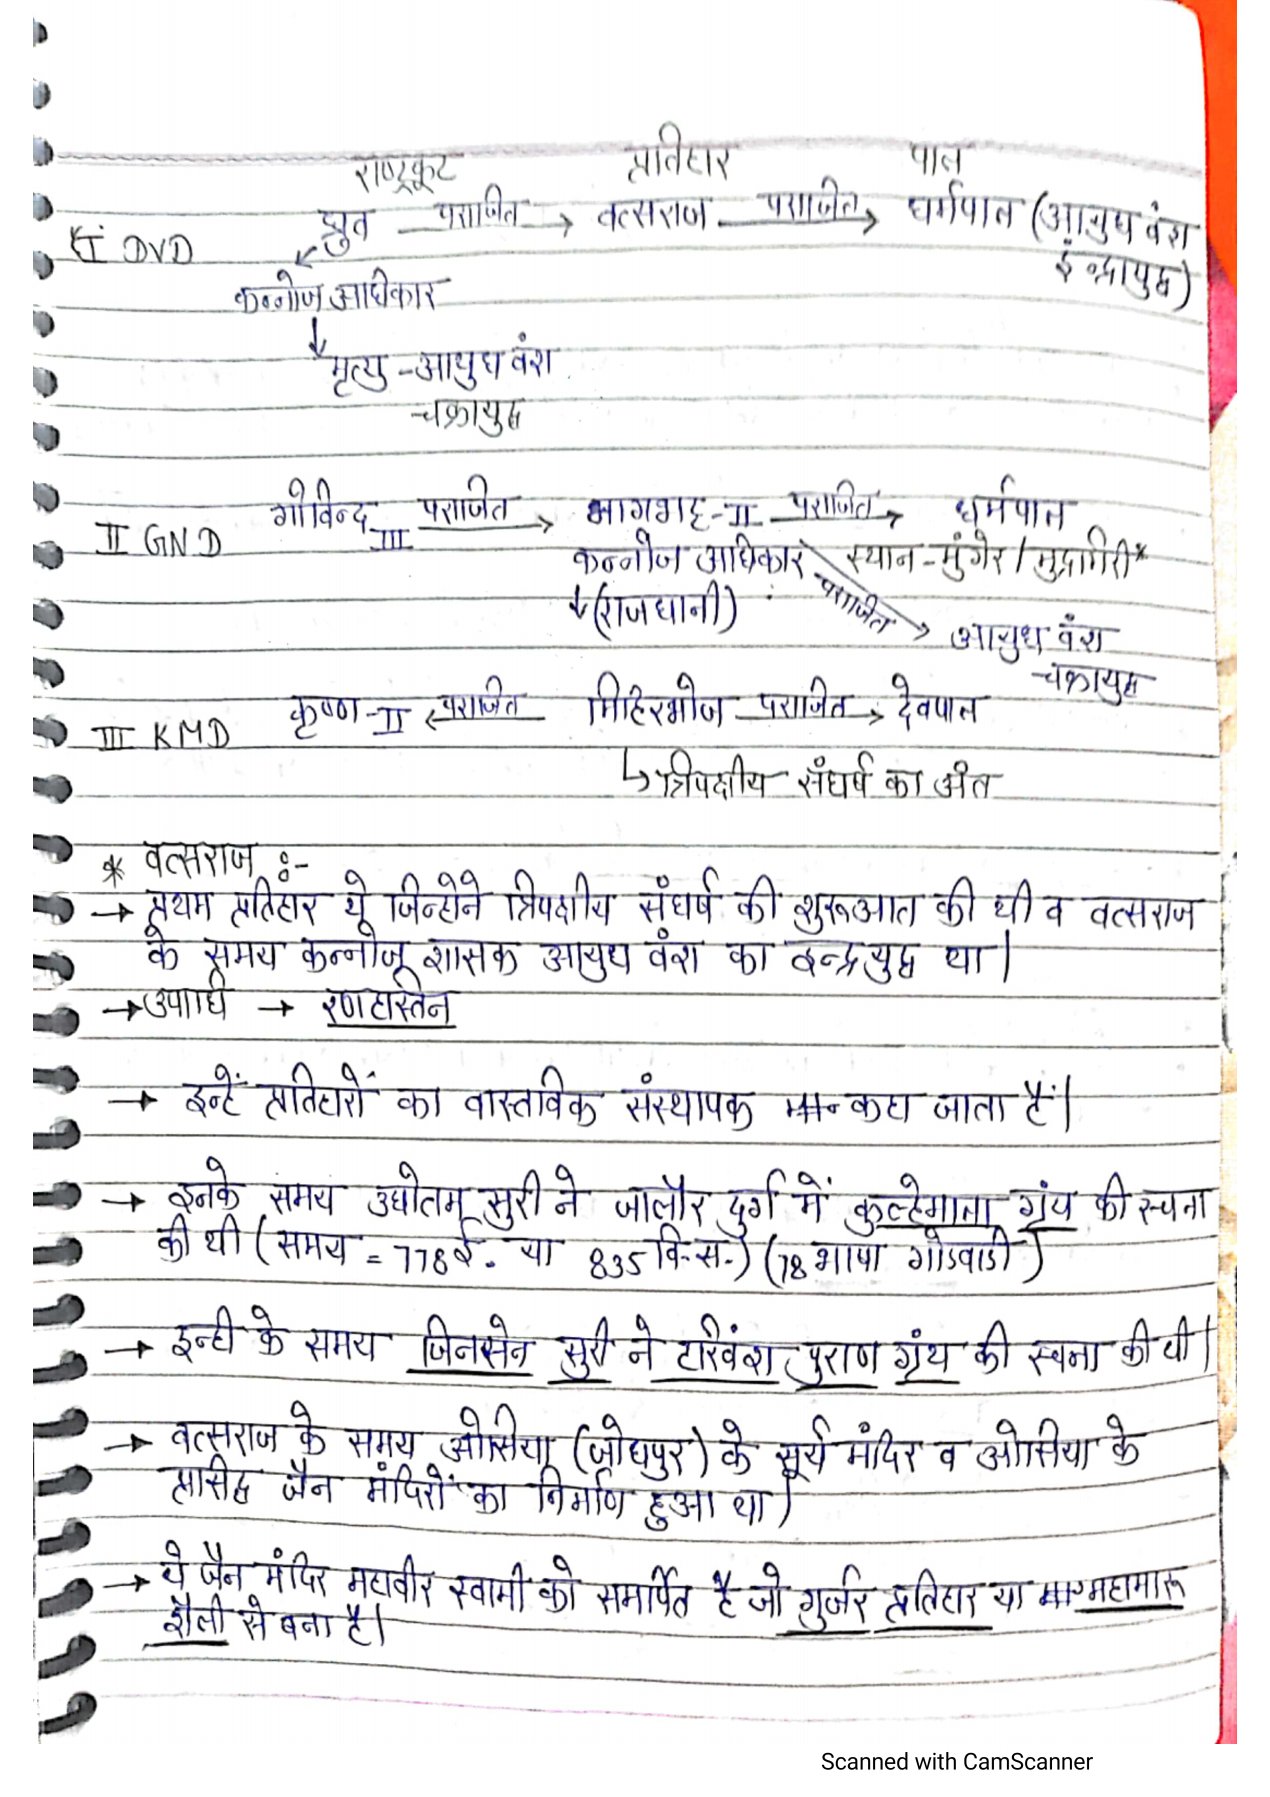 राष्ट्रकूट प्रतिहार पाल
I DVD ध्रुव पराजित → वत्सराज पराजित → धर्मपाल (आयुध वंश
इन्द्रायुद्ध)
कन्नोज अधिकार
↓
मृत्यु - आयुध वंश
चक्रायुद्ध
II GND गोविन्द III पराजित → नागभट्ट-II पराजित → धर्मपाल
कन्नोज अधिकार स्थान - मुंगेर / मुद्रागिरी*
↓(राजधानी) पराजित → आयुध वंश
चक्रायुद्ध
III KMD कृष्ण-II ← पराजित मिहिरभोज पराजित → देवपाल
↳ त्रिपक्षीय संघर्ष का अंत
* वत्सराज :-
→ प्रथम प्रतिहार थे जिन्होने त्रिपक्षीय संघर्ष की शुरूआत की थी व वत्सराज
के समय कन्नोज शासक आयुध वंश का इन्द्रयुद्ध था।
→ उपाधि → रणहस्तिन
→ इन्हें प्रतिहारों का वास्तविक संस्थापक कहा जाता हैं।
→ इनके समय उधोतम सुरी ने जालौर दुर्ग में कुल्हेमाला ग्रंथ की रचना
की थी (समय = 778 ई. या 835 वि.स.) (78 भाषा गोडवाडी)
→ इन्ही के समय जिनसेन सुरी ने हरिवंश पुराण ग्रंथ की रचना की थी।
→ वत्सराज के समय ओसिया (जोधपुर) के सूर्य मंदिर व ओसिया के
प्रसिद्ध जैन मंदिरों का निर्माण हुआ था।
→ ये जैन मंदिर महावीर स्वामी को समर्पित है जो गुर्जर प्रतिहार या महामारू
शैली से बना है।
Scanned with CamScanner